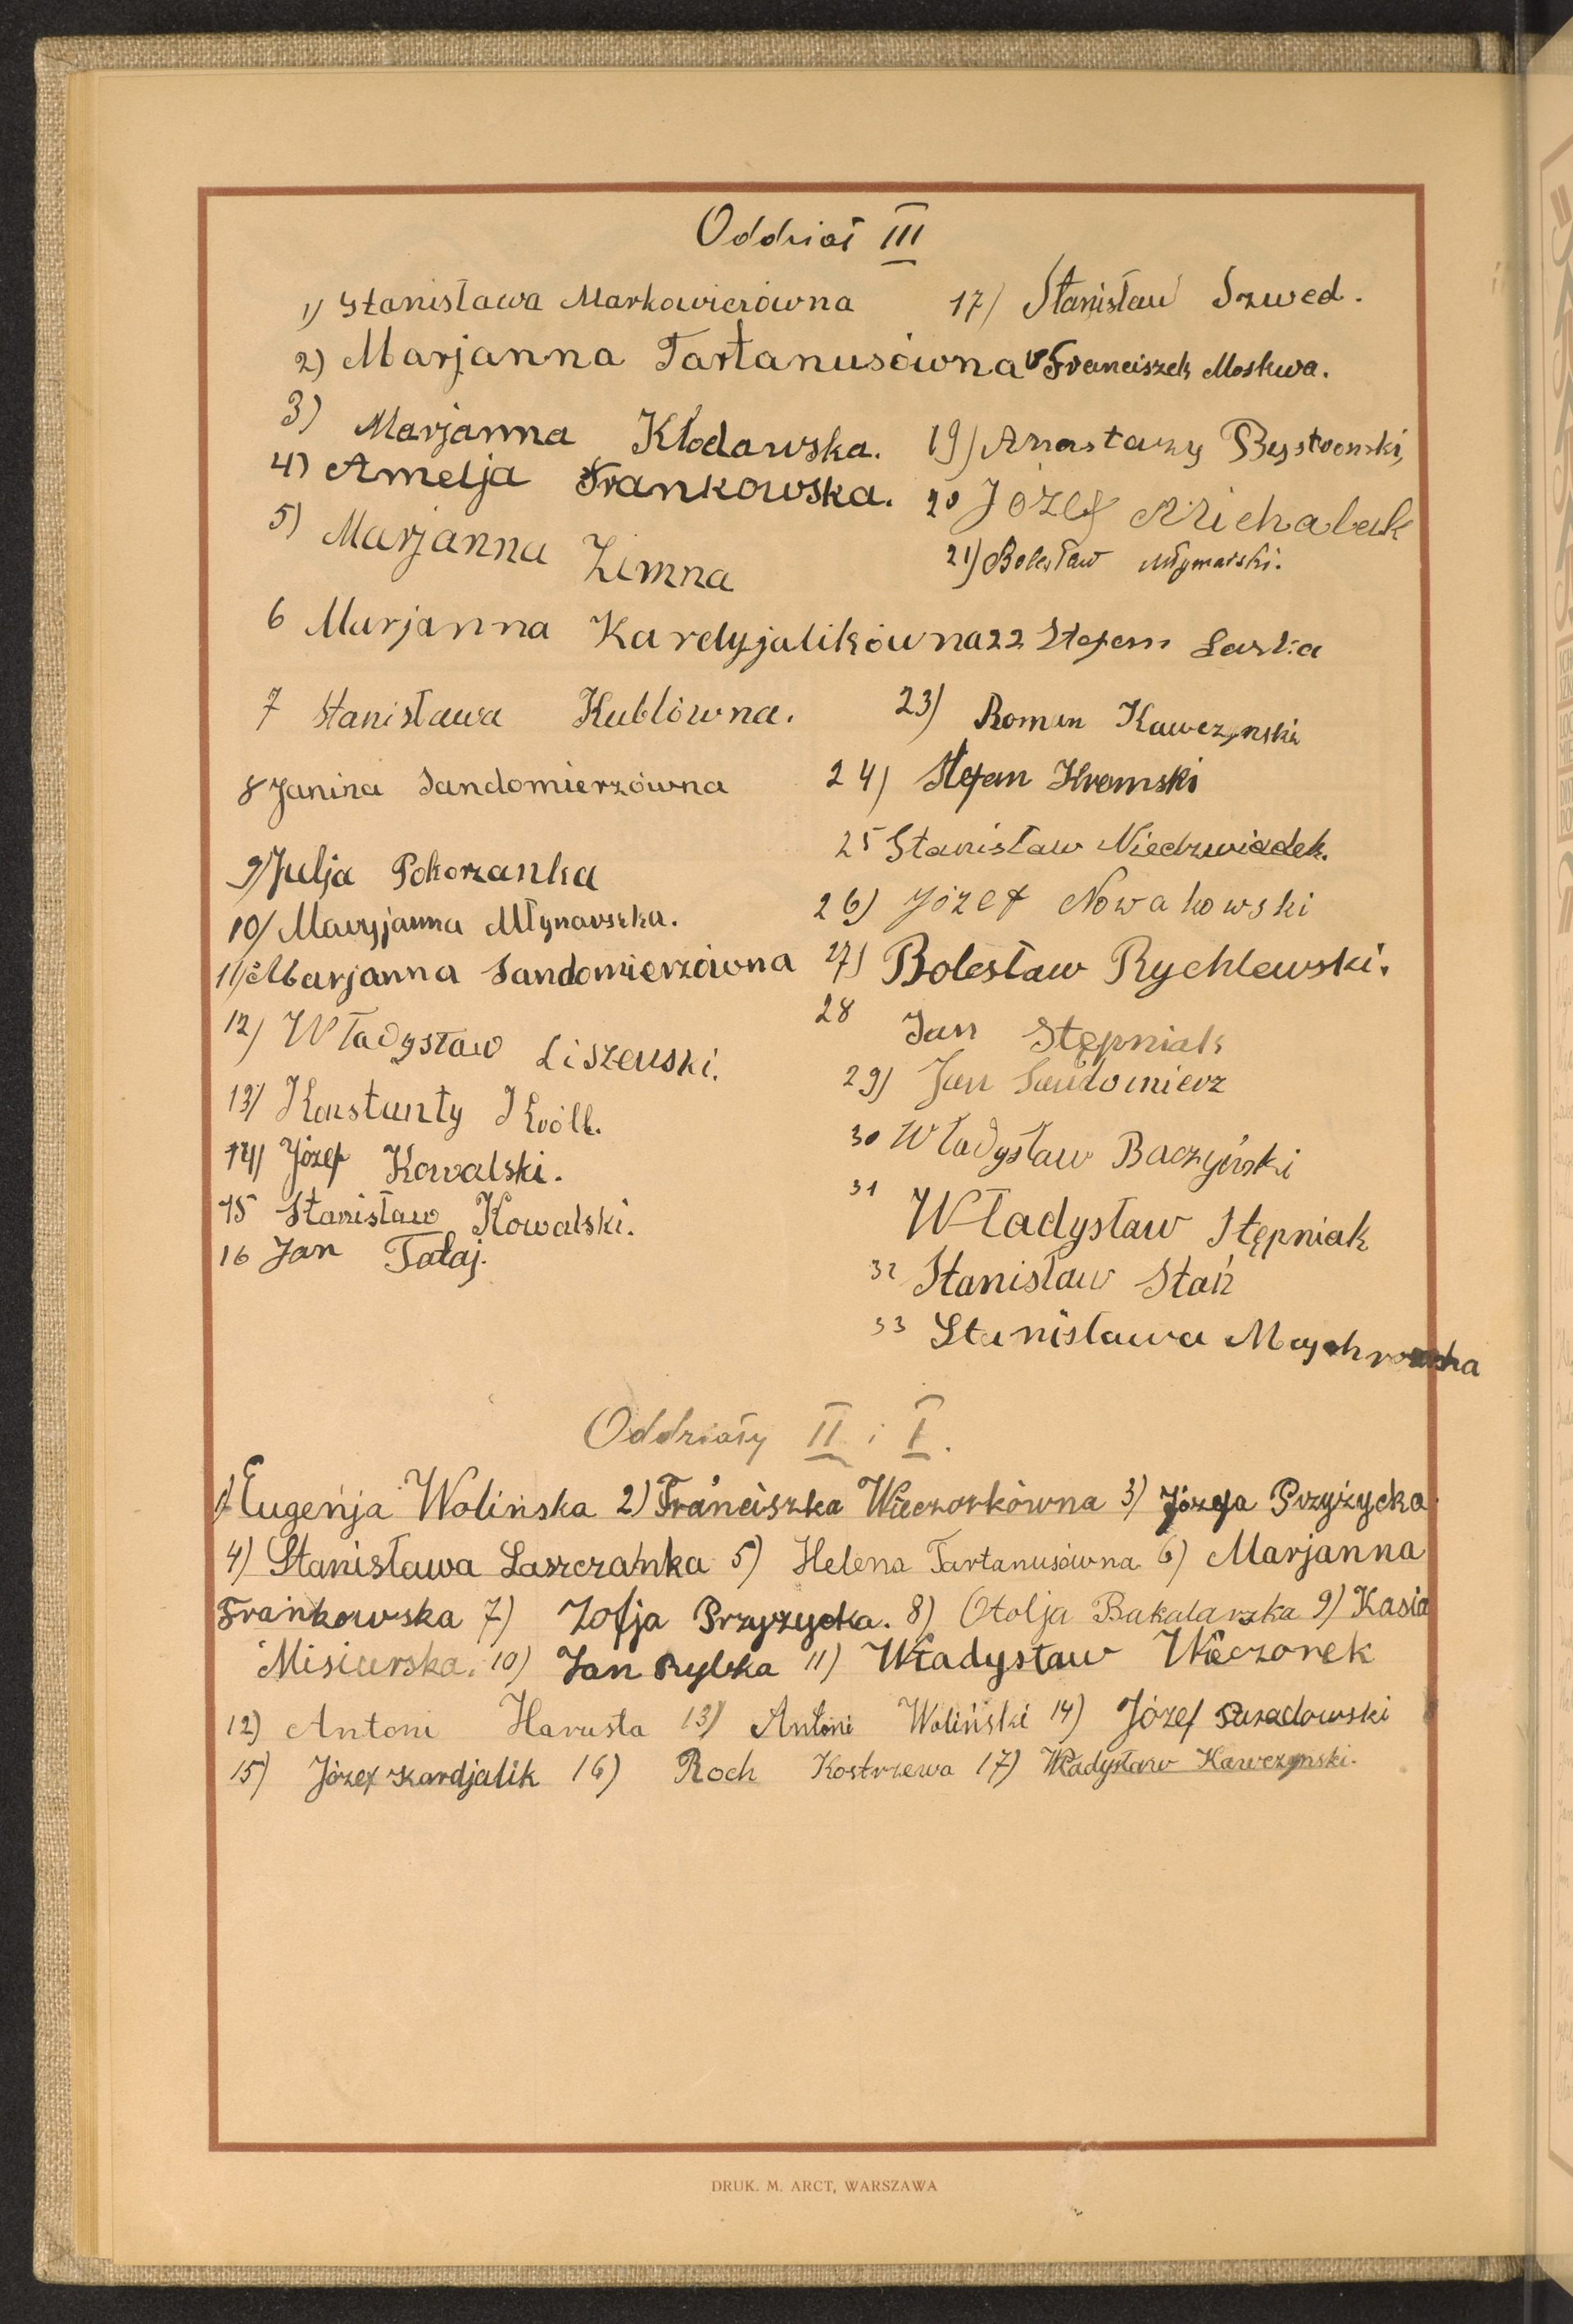 Oddział III
1) Stanisława Markowiczówna
2) Marjanna Tartanusówna
3) Marjanna Kłodawska.
4) Amelja Frankowska.
5) Marjanna Zimna
6 Marjanna Kardyjalikówna
7 Stanisława Kublówna.
8 Janina Sandomierzówna
9) Julja Pokorzanka
10) Maryjanna Młynarska.
11) Marjanna Sandomierzówna
12) Władysław Liszewski.
13) Konstanty Król.
14) Józef Kowalski.
15 Stanisław Kowalski.
16 Jan Tataj.
17) Stanisław Szwed.
Franciszek Moskwa.
19) Anastazy Bystroński,
20 Józef Michalak
21) Bolesław Młynarski.
22 Stefan
23) Roman Kawczynski
24) Stefan Kremski
25 Stanisław Niedzwiadek.
26) Józef Nowakowski
27) Bolesław Rychlewski.
28 Jan Stępniak
29) Jan Sandomierz
30 Władysław Baczyński
31 Władysław Stępniak
32 Stanisław Stań
33 Stanisława
Oddziały II i I.
1) Eugenja Wolińska 2) Franciszka Wieczorkówna 3) Józefa Przyżycka
4) Stanisława Laszczanka 5) Helena Tartanusówna 6) Marjanna
Frankowska 7) Zofja Przyzycka. 8) Otolja Bakalarzka 9) Kasia
Misiurska. 10) Jan Rylska 11) Władysław Wieczorek
12) Antoni Harusta 13) Antoni Woliński 14) Józef Suradowski
15) Józef Kardjalik 16) Roch Kostrzewa 17) Władysław Kawczynski.
DRUK. M. ARCT, WARSZAWA